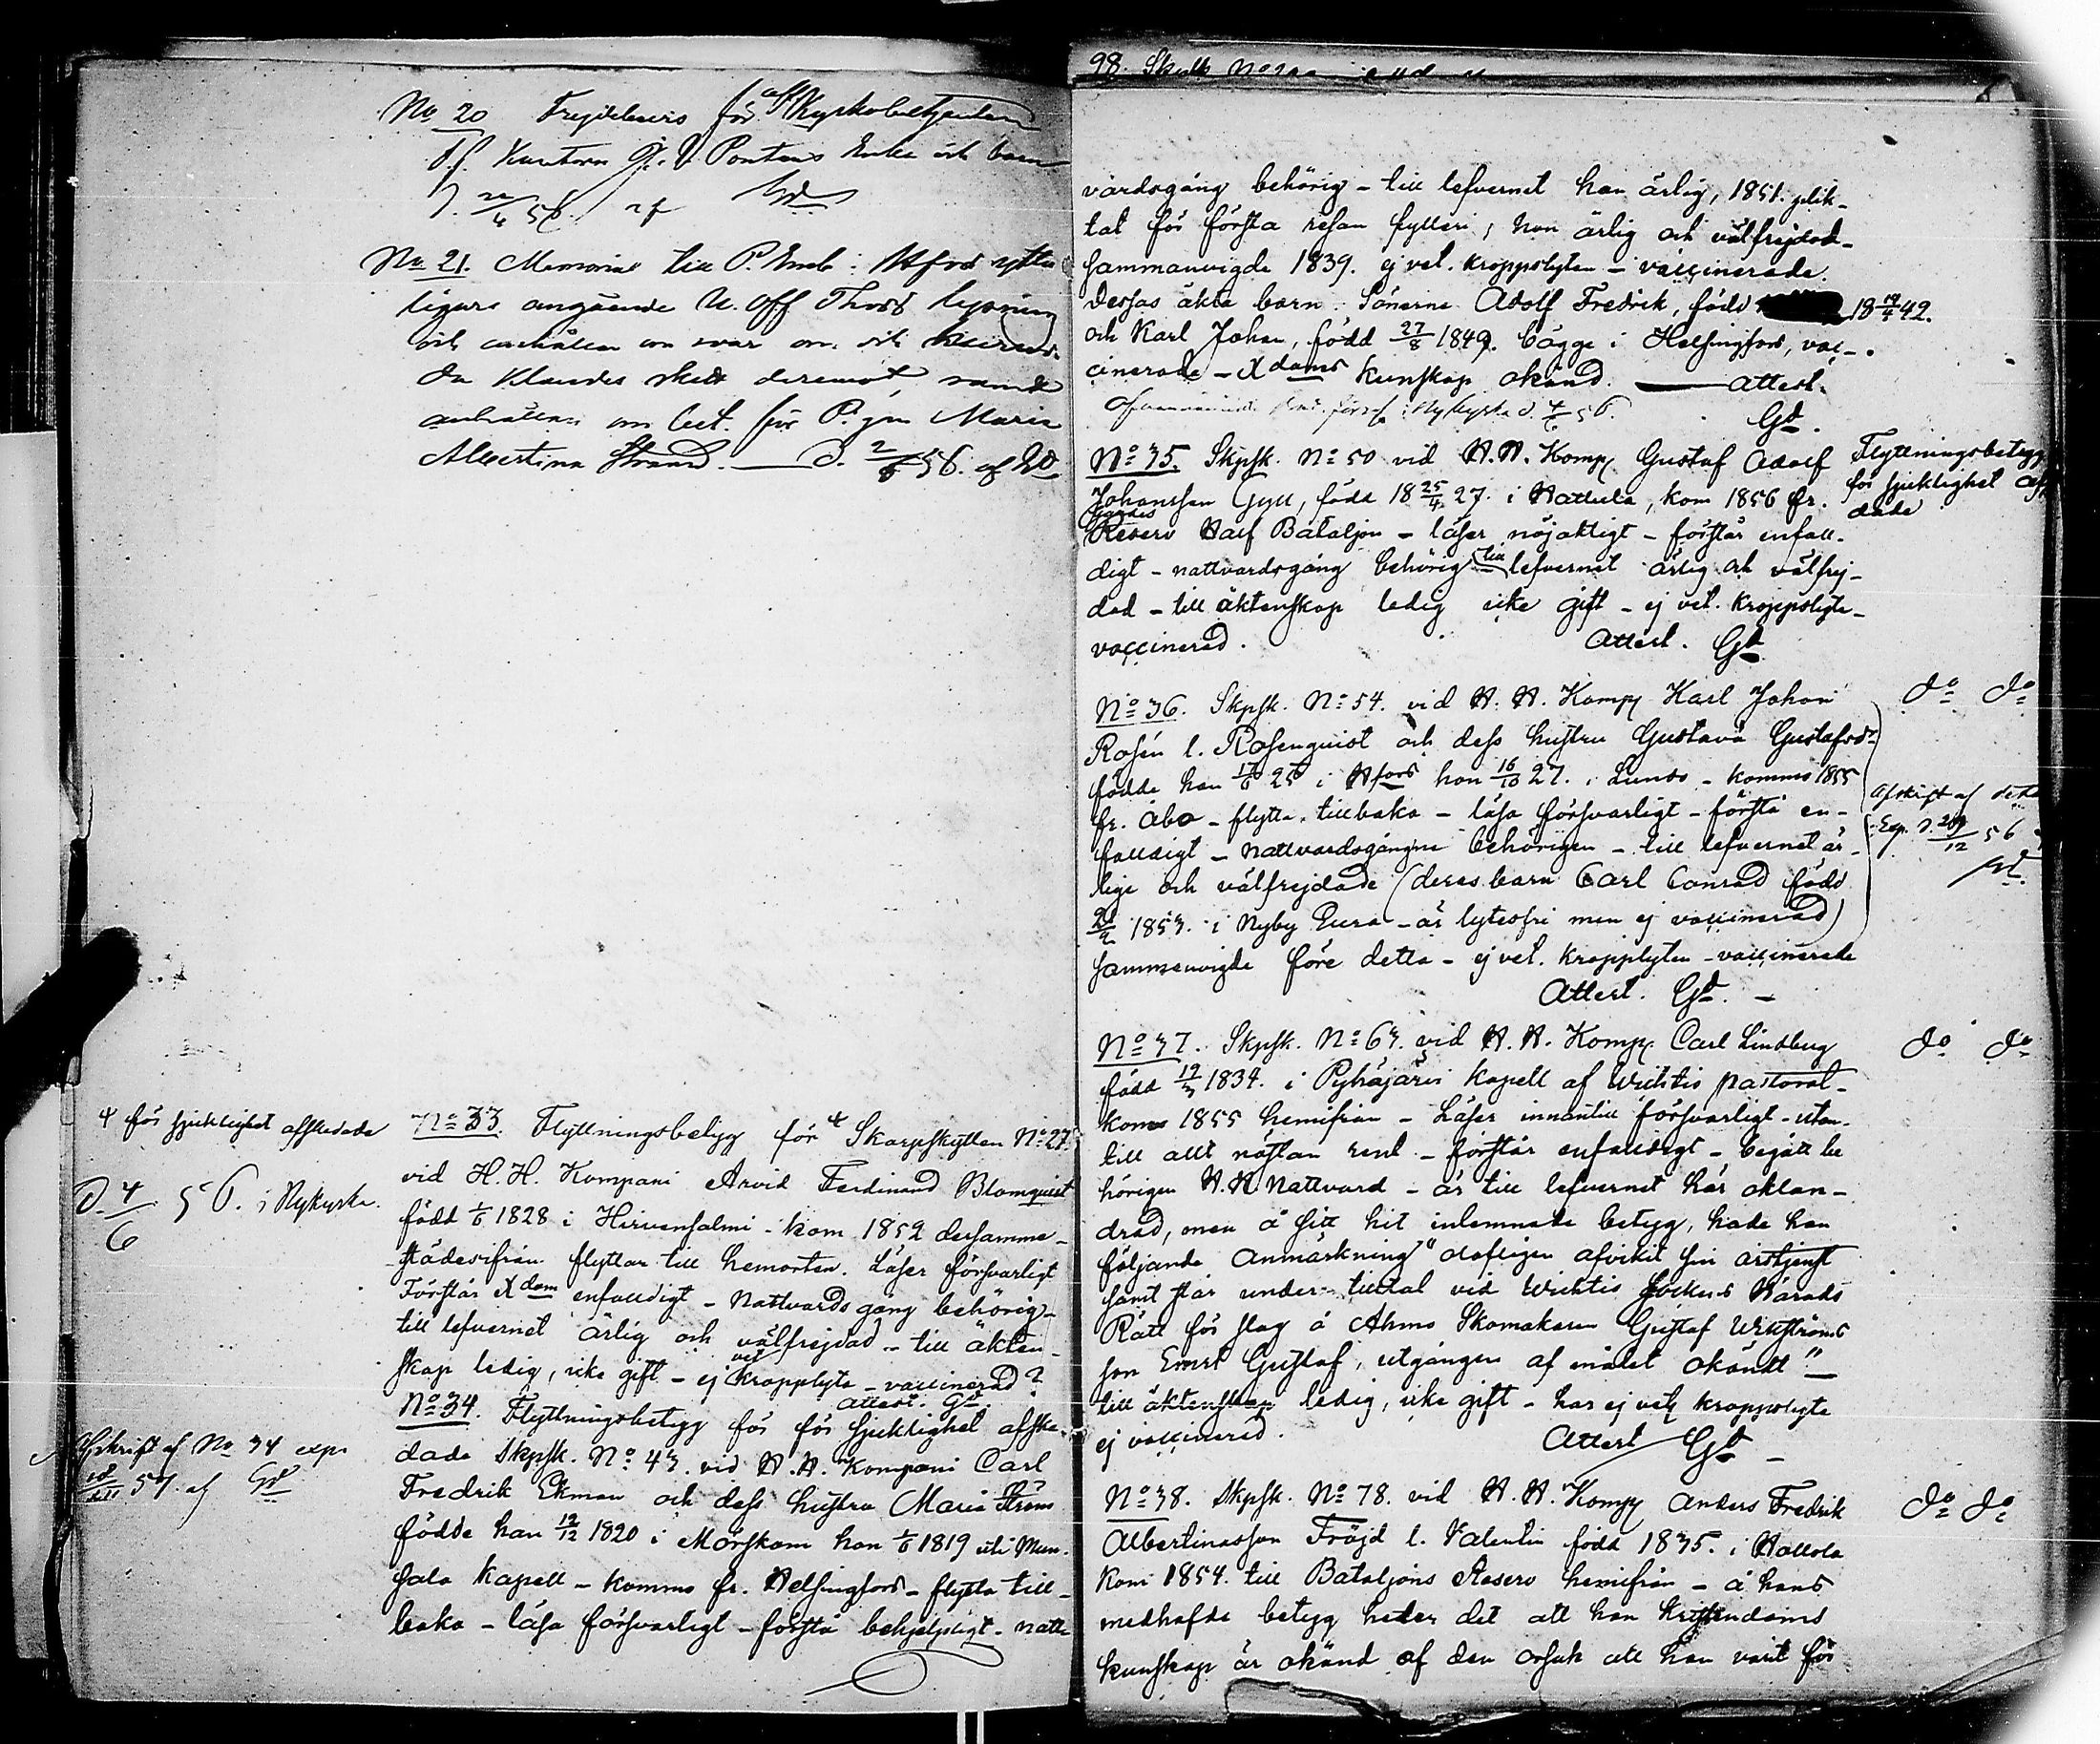 98. Skytt No
No 20 Frejdebevis för Kyrkobetjenten
Kantorn Pontens Enka och barn
d. 22/4 56. af Gd
No 21. Memorial till P. Emb: Hfors ytter
ligare angående U. Off lysning
och anhållan om svar om och huruvida
Klandes skett deremot samt
anhållan om bet. för P. gn Maria
Albertina Strand. — d. 2/6 56. af Gd
+ för sjuklighet afskedade
d. 4/6 56. i Nykyrka.
No 33. Flyttningsbetyg för + Skarpskytten No 27.
vid H. H. Kompani Arvid Ferdinand Blomquist
född 1/6 1828 i Hirvensalmi - kom 1852 dersamma-
städesifrån flyttar till hemorten. Läser försvarligt
Förstår Xdom enfalldigt - Nattvards gång behörig-
till lefvernet ärlig och välfrejdad - till äkten-
skap ledig, icke gift - ej vet kropplyte - vaccinerad?
Attest. Gd.
Afskrift af No 34 exp.
57. af Gd
No 34. Flyttningsbetyg för för sjuklighet afske-
dade Skpsk. No 43. vid H. H. Kompani Carl
Fredrik Ekman och dess hustru Maria Ström
födde han 12/12 1820 i Mörskom hon 1/6 1819 uti Mun-
sala Kapell - komme fr. Helsingfors - flytta till-
baka - läsa försvarligt - förstå behjelpligt - natt-
vardsgång behörig - till lefvernet han ärlig, 1851. plik-
tat för första resan fylleri; hon ärlig och välfrejdad -
sammanvigde 1839. ej vet. kroppslyten - vaccinerade.
Dessas äkta barn: Sönerne Adolf Fredrik, född 18 19/4 42.
och Karl Johan, född 27/8 1849. bägge i Helsingfors, vac-
cinerade - Xdoms kunskap okänd. — Attest.
i Nykyrka d. 4/6 56.
Gd.
No 35. Skpsk. No 50 vid H. H. Komp. Gustaf Adolf
Johansson Gyll, född 18 25/4 27. i Hattula, kom 1856 fr.
Reserv Half Bataljon - läser nöjaktigt - förstår enfall-
digt - nattvardsgång behörig - till lefvernet ärlig och välfrej-
dad - till äktenskap ledig icke gift - ej vet. kroppslyte -
vaccinerad. Attest. Gd
Flyttningsbetyg
för sjuklighet afske
dade
No 36. Skpsk. No 54. vid H. H. Komp. Karl Johan
Rosén l. Rosenquist och dess hustru Gustava Gustafsdr
födde han 17/6 25 i Hfors hon 16/10 27. i Lundo - kommo 1855
fr. Åbo - flytta tillbaka - läsa försvarligt - förstå en-
falldigt - nattvardsgången behörigen - till lefvernet är-
lige och välfrejdade (deras barn Carl Conrad född
1853. i Nyby Eura - är lytesfri men ej vaccinerad)
sammanvigde före detta - ej vet. kropplyten - vaccinerade
Attest. Gd. -
do do
Afskrift af detta
Exp. d. 29/12 56
No 37. Skpsk. No 63. vid H. H. Komp. Carl Lindberg
född 19/3 1834. i Pyhäjärvi Kapell af Wichtis pastorat -
kom 1855 hemifrån - Läser innantill försvarligt - utan-
till allt nästan rent - förstår enfalldigt - begått be
hörigen H. H. Nattvard - är till lefvernet här oklan-
drad, men å sitt hit inlemnade betyg, hade han
följande Anmärkning "olofligen afvikit sin årstjenst
samt står under tilltal vid Wichtis Sockens Härads
Rätt för slag å Ahmo Skomakaren Gustaf Wikströms
son Ernst Gustaf, utgången af målet okändt" —
till äktenskap ledig, icke gift - har ej vet. kroppslyte
ej vaccinerad. Attest Gd -
do do
No 38. Skpsk. No 78. vid H. H. Komp. Anders Fredrik
Albertinasson Fröjd l. Valentin född 1835. i Hollola
kom 1854. till Bataljons Reserv hemifrån - å hans
medhafde betyg heter det att han kristendoms
kunskap är okänd af den orsak att han varit för
do do